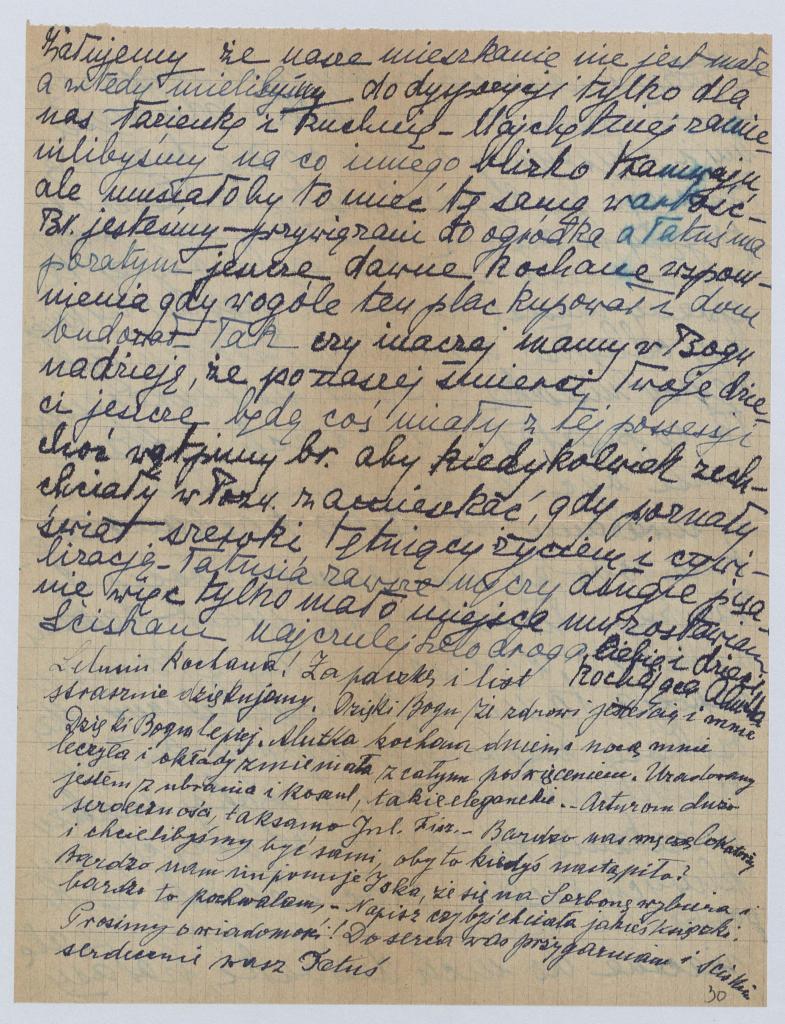 Żałujemy że nasze mieszkanie nie jest małe
a wtedy mielibyśmy do dyspozycji tylko dla
nas łazienkę i kuchnię – Najchętniej zamie-
nilibyśmy na co innego blizko tramwaju,
ale musiałoby to mieć tę samą wartość –
Br. jesteśmy przywiązani do ogródka a Tatuś ma
pozatym jeszcze dawne kochane wspom-
nienia gdy wogóle ten plac kupował i dom
budował – Tak czy inaczej mamy w Bogu
nadzieję, że po naszej śmierci Twoje dzie-
ci jeszcze będą coś miały z tej possessji
choć wątpimy br. aby kiedykolwiek zech-
chciały w Pozn. zamieszkać, gdy poznały
świat szeroki tętniący życiem i cywi-
lizacją – Tatusia zawsze męczy długie pisa-
nie więc tylko mało miejsca mu zostawiam
Ściskam najczulej droga Ciebie i dzieci
Kochająca Alutka
kochana! Za paczkę i list
strasznie dziękujemy. Dzięki Bogu że zdrowi jesteście i mnie
Dzięki Bogu lepiej. Alutka kochana dniem i nocą mnie
leczyła i okłady zmieniała z całym poświęceniem. Uradowany
jestem z ubrania i koszul, takie eleganckie. – Arturom dużo
serdeczności, taksamo Inl. Fisz. – Bardzo nas męczą lokatorzy
i chcielibyśmy być sami, oby to kiedyś nastąpiło?
Bardzo nam imponuje Iska, że się na Sorbonę wybiera i
bardzo to pochwalamy – Napisz czy byś chciała jakieś książki.
Prosimy o wiadomość! Do serca was przygarniam i ściskam
serdecznie wasz Tatuś
30